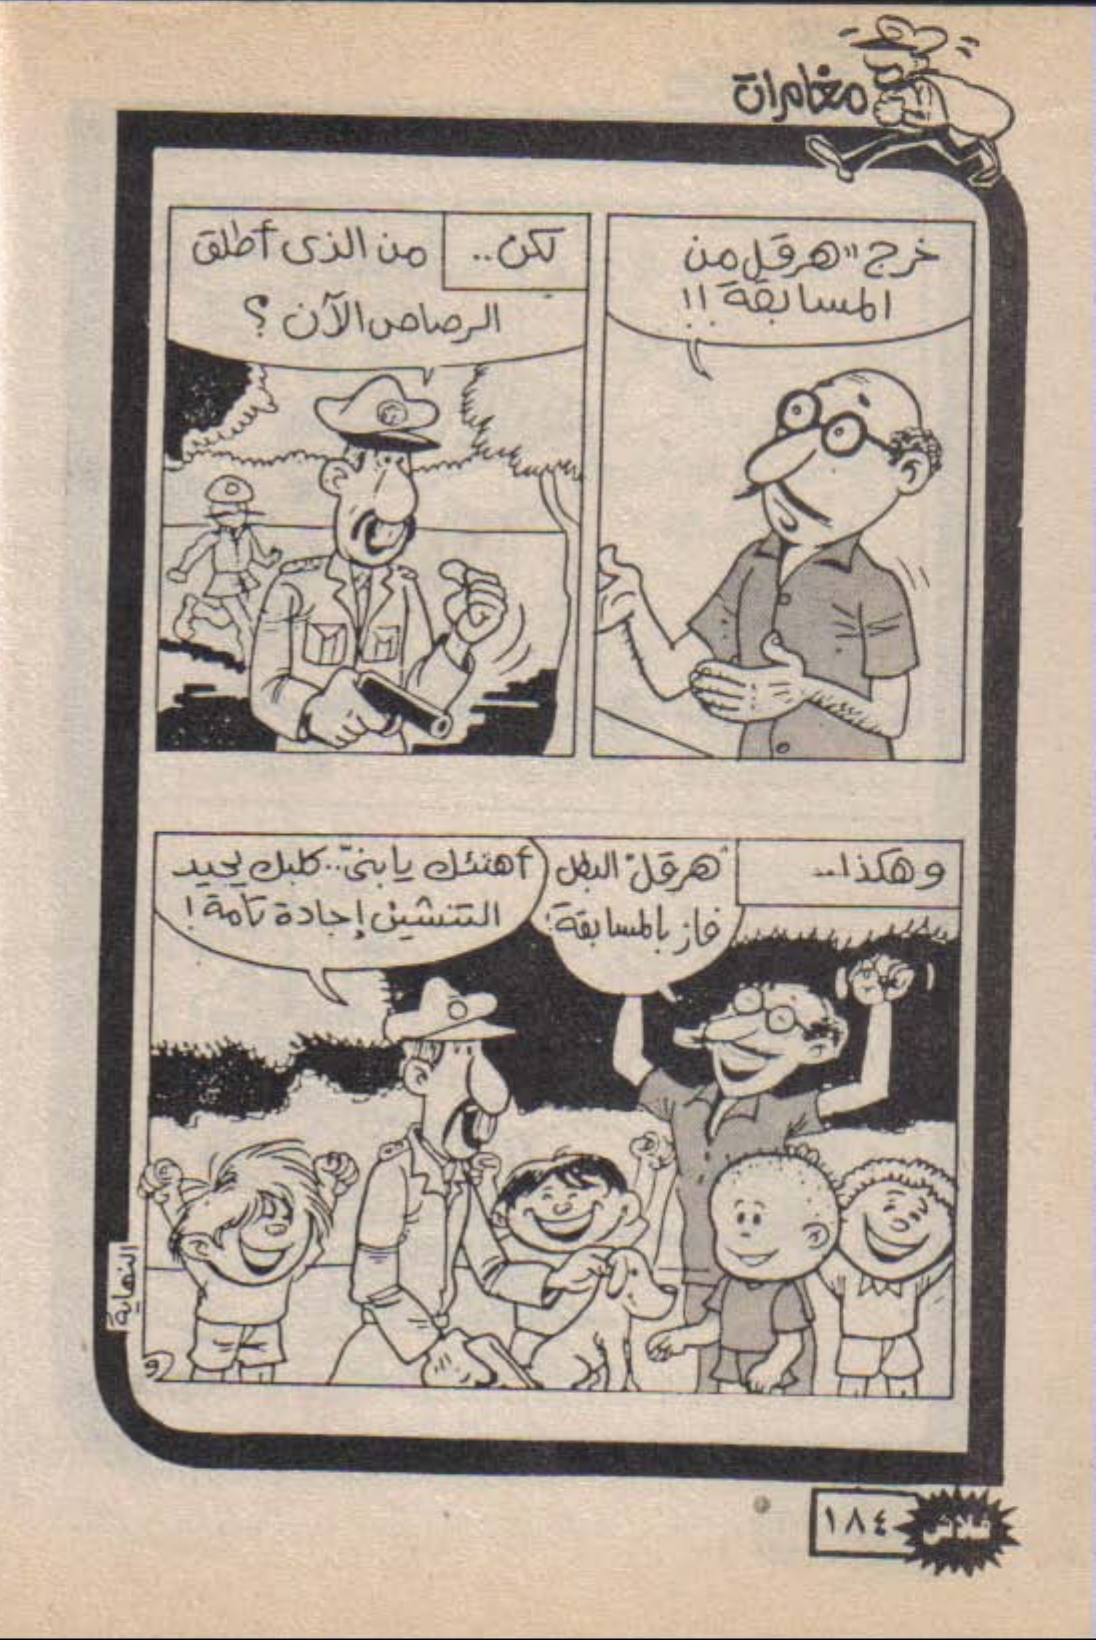 مغامرات
خرج "هرقل من
المسابقة!!
لكن..
من الذى أطلق
الرصاص الآن؟
وهكذا..
"هرقل" البطل
فاز بالمسابقة!
أهنئك يا بنىّ.. كلبك يجيد
التنشين إجادة تامة!
النهاية
فلاش
١٨٤